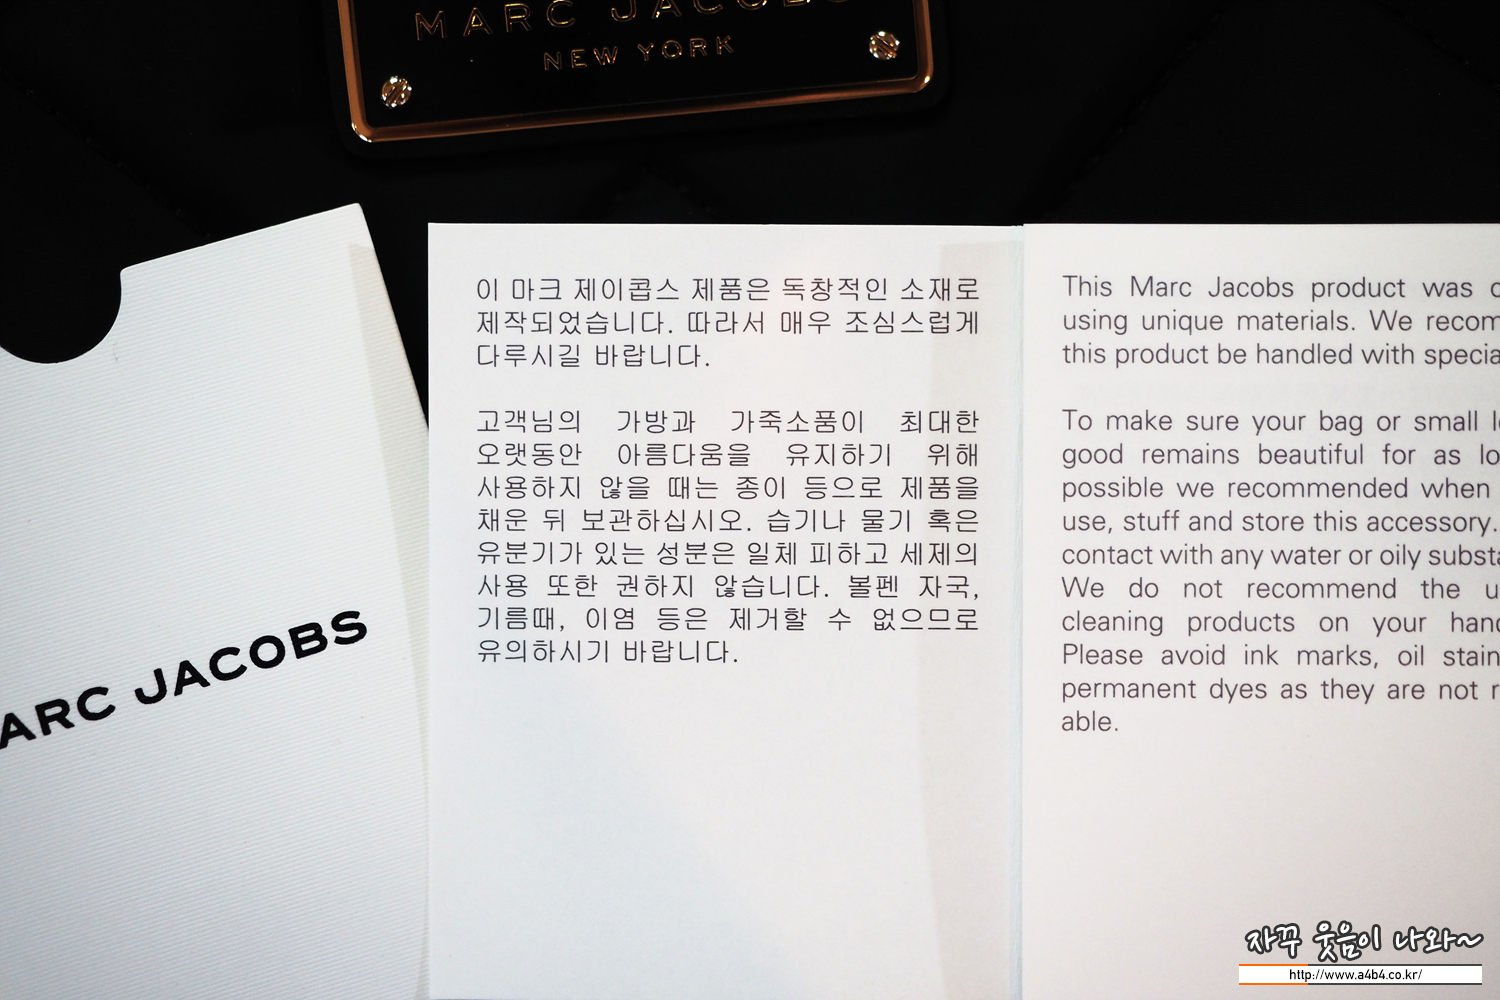 MARC JACOBS
NEW YORK
이 마크 제이콥스 제품은 독창적인 소재로
제작되었습니다. 따라서 매우 조심스럽게
다루시길 바랍니다.
고객님의 가방과 가죽소품이 최대한
오랫동안 아름다움을 유지하기 위해
사용하지 않을 때는 종이 등으로 제품을
채운 뒤 보관하십시오. 습기나 물기 혹은
유분기가 있는 성분은 일체 피하고 세제의
사용 또한 권하지 않습니다. 볼펜 자국,
기름때, 이염 등은 제거할 수 없으므로
유의하시기 바랍니다.
This Marc Jacobs product was
using unique materials. We recom
this product be handled with specia
To make sure your bag or small
good remains beautiful for as lo
possible we recommended when
use, stuff and store this accessory.
contact with any water or oily substa
We do not recommend the u
cleaning products on your hand
Please avoid ink marks, oil stain
permanent dyes as they are not
able.
ARC JACOBS
자꾸 웃음이 나와~
http://www.a4b4.co.kr/